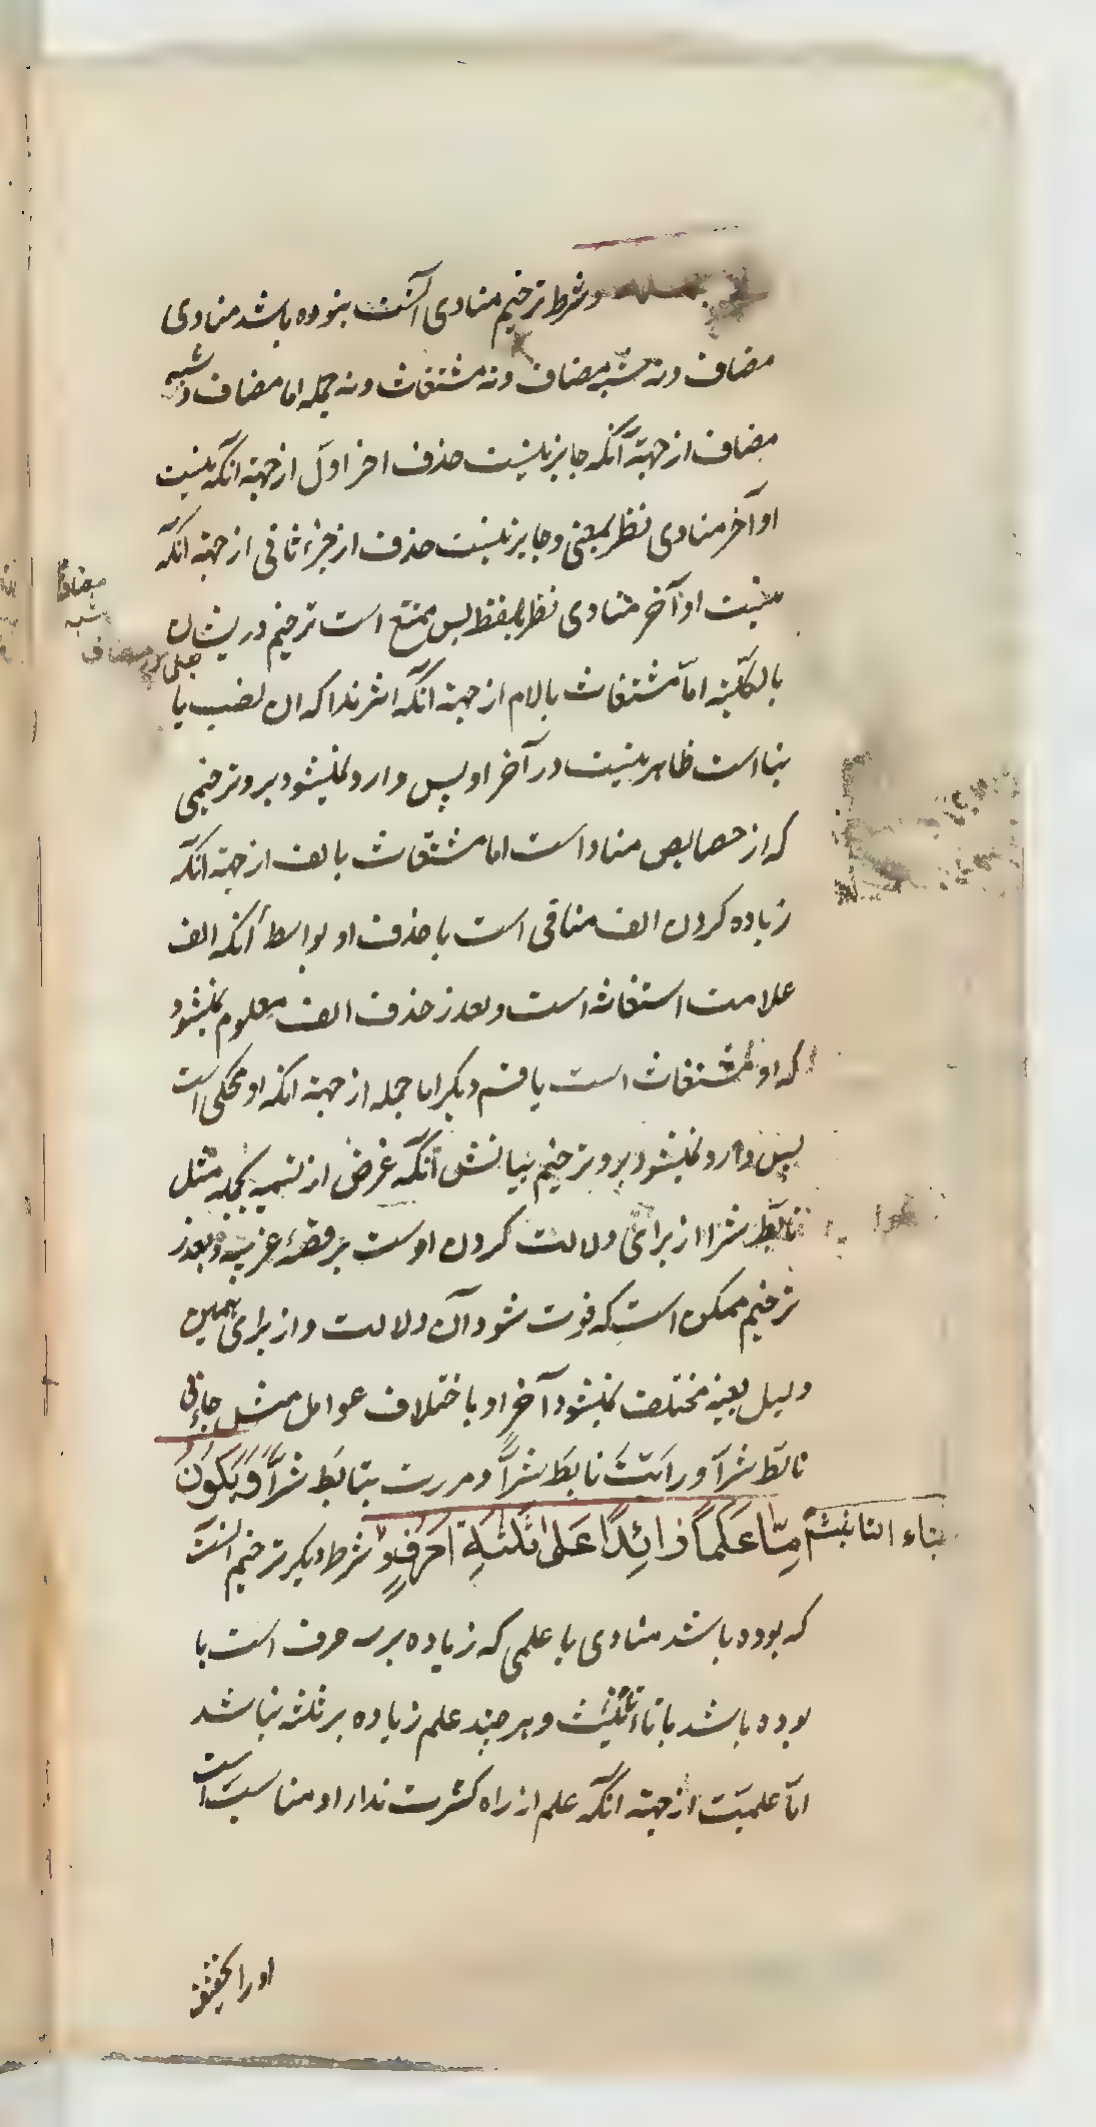 وشرط ترخیم منادی آنست نبوده باشد منادی
مضاف ونه شبه مضاف ونه مستغاث ونه جمله اما مضاف وشبه
مضاف از جهة آنکه جایز نیست حذف اخر اول از جهة انکه نیست
او آخر منادی نظر بمعنی وجایز نیست حذف از جزء ثانی از جهة انکه
نیست او آخر منادی نظر بلفظ پس ممتنع است ترخیم دریشان
بالکلیّه امّا مستغاث بالام از جهة انکه اثر ندا که ان نصب یا
بنا است ظاهر نیست در آخر او پس وارد نمیشود برو ترخیمی
که از خصایص منادا است اما مستغاث بالف از جهة انکه
زیاده کردن الف منافی است با حذف او بواسط آنکه الف
علامت استغاثه است وبعد از حذف الف معلوم نمیشود
که او مستغاث است یا قسم دیگر اما جمله از جهة انکه او محکی است
پس وارد نمیشود برو ترخیم بیانش آنکه غرض از تسمیه بجمله مثل
تابّط شرا از برای دلالت کردن اوست بر قصّهٔ غریبه وبعد از
ترخیم ممکن است که فوت شود آن دلالت واز برای همین
دلیل بعینه مختلف نمیشود آخر او باختلاف عوامل مثل جاءنی
تابّط شرّاً ورایت تابّط شرّاً ومررت بتابّط شرّاً وَیَکُونَ
اِمّا عَلَماً زائِداً عَلیٰ ثَلٰثَةِ اَحرُفٍ شرط دیگر ترخیم انست
بتاء التانیث
که بوده باشد منادی یا علمی که زیاده بر سه حرف است یا
بوده باشد با تاء تانیث وهر چند علم زیاده بر ثلثه نباشد
امّا علمیّت از جهة انکه علم از راه کثرت ندا او مناسب است
مضاف
شبه
مضاف
اورا تخفیف